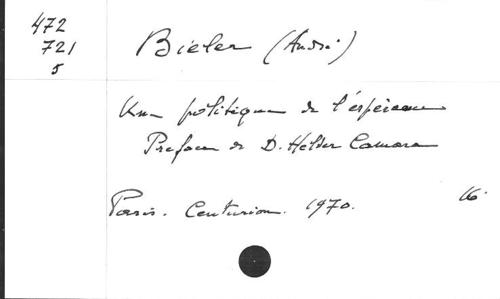 472
721
5
Bieler (André)
Une politique de l'espérance
Preface de D. Helder Camara
Paris. Centurion. 1970. 16°